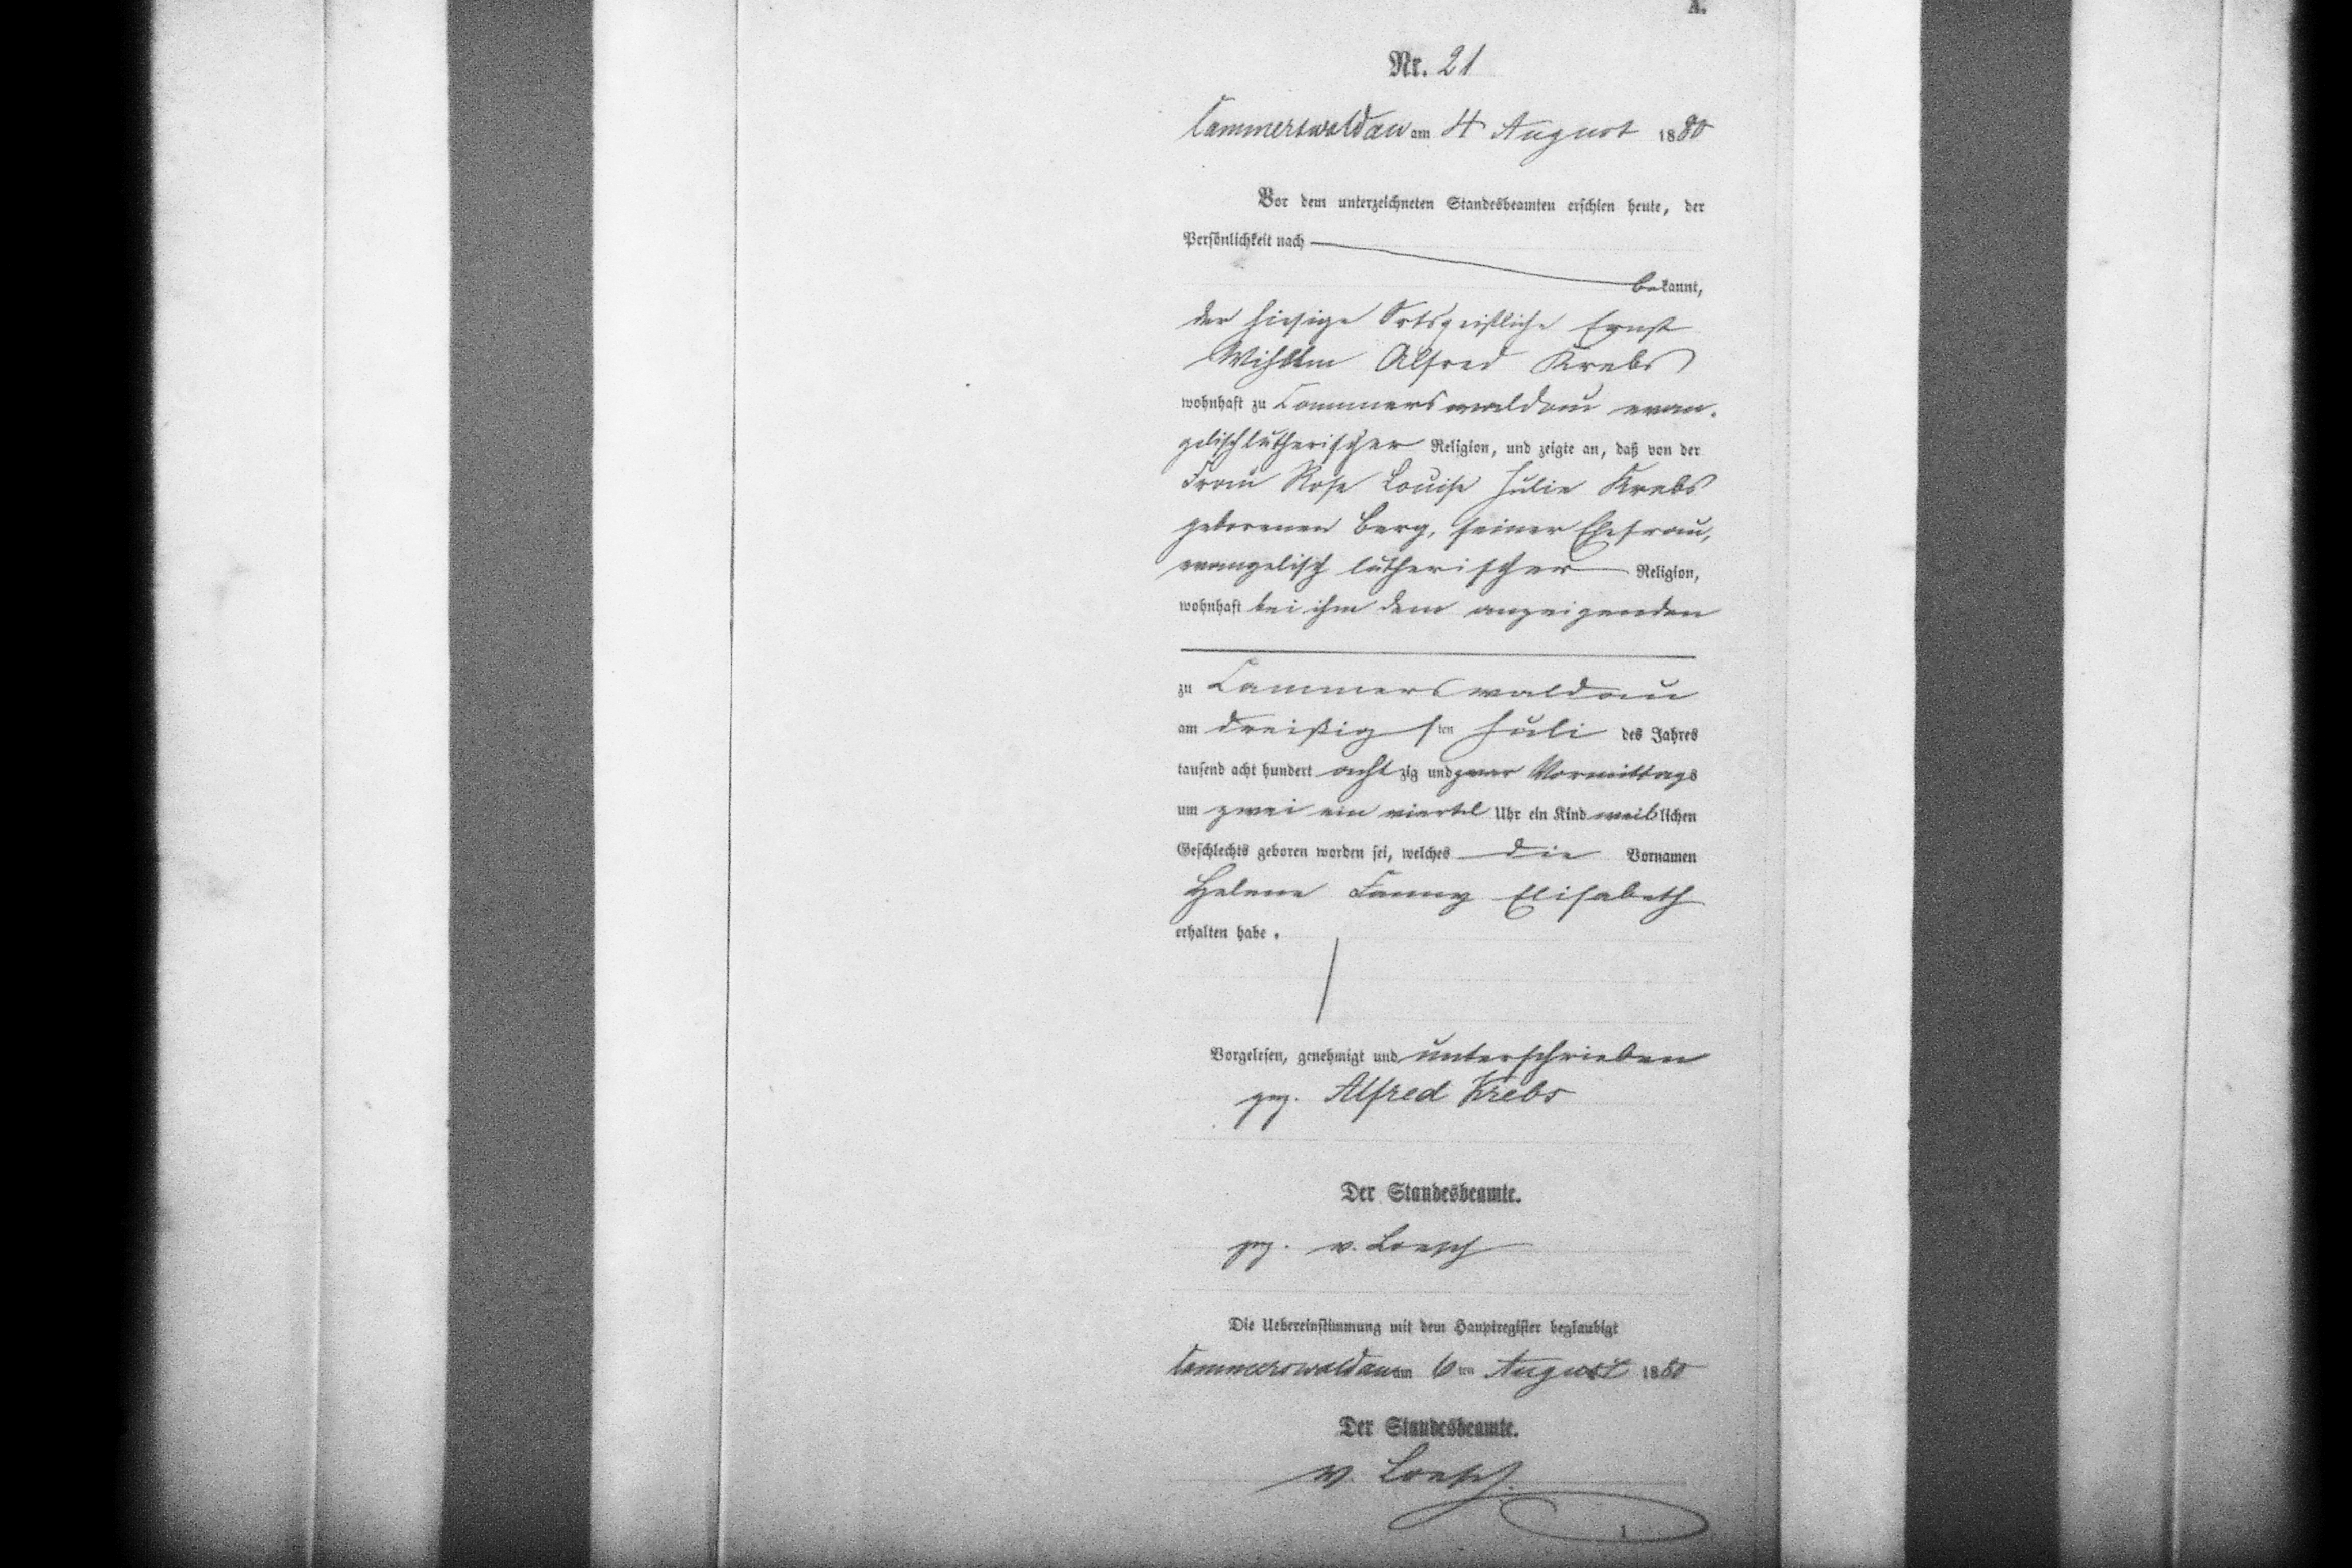 A.
Nr. 21
Cammerswaldau am 4 August 1880
Vor dem unterzeichneten Standesbeamten erschien heute, der
Persönlichkeit nach
bekannt,
der hiesige Ortsgeistliche Ernst
Wihlhlm Alfred Krebs
wohnhaft zu Cammerswaldau evan-
gelischlutherischer Religion, und zeigte an, daß von der
Frau Rose Louise Julie Krebs
geborenen Berg, seiner Ehefrau,
evangelisch lutherischer Religion,
wohnhaft bei ihm dem anzeigenden
zu Cammerswaldau
am dreißigsten Juli des Jahres
tausend acht hundert achtzig und zwar Vormittags
um zwei ein viertel Uhr ein Kind weiblichen
Geschlechts geboren worden sei, welches die Vornamen
Helene Fanny Elisabeth
erhalten habe.
Vorgelesen, genehmigt und unterschrieben
gez. Alfred Krebs
Der Standesbeamte.
gez. v. Loesch
Die Uebereinstimmung mit dem Hauptregister beglaubigt
Cammerswaldau am 6ten August 1880
Der Standesbeamte.
v. Loesch.
1